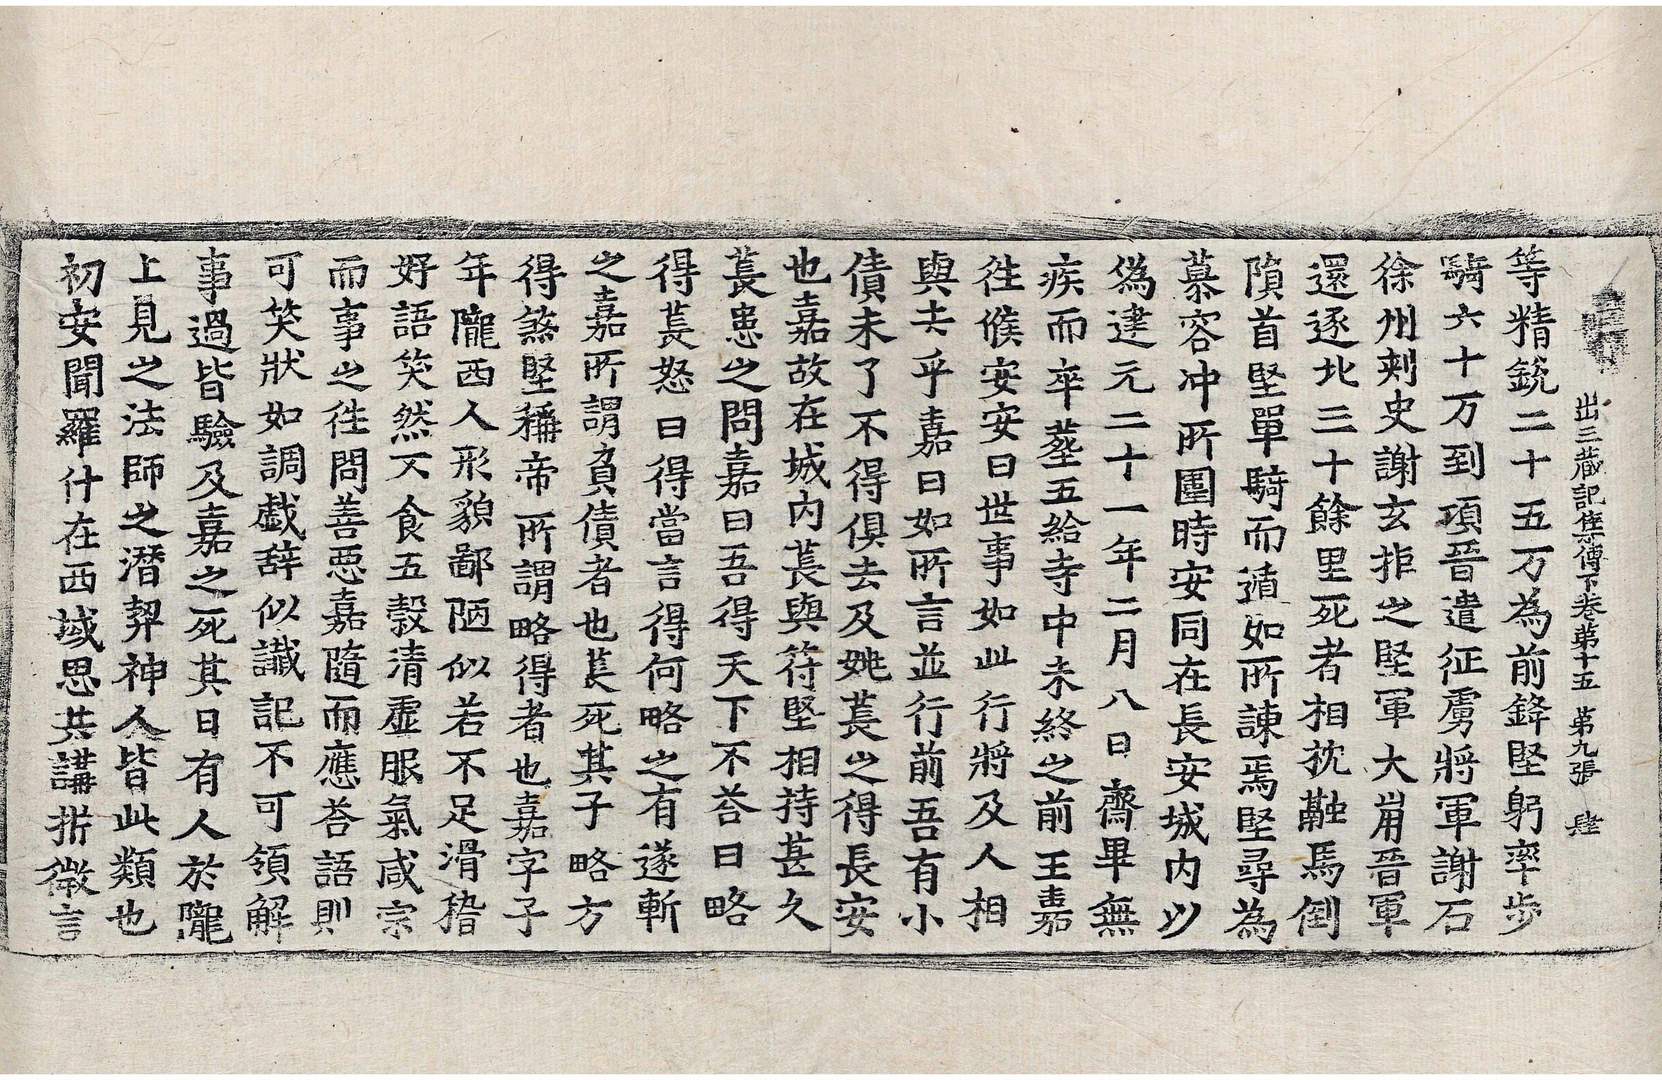 出三藏記集傳下卷第十五 第九張 肆
等精銳二十五万為前鋒堅躬率步
騎六十万到項晉遣征虜將軍謝石
徐州刺史謝玄拒之堅軍大崩晉軍
還逐北三十餘里死者相枕融馬倒
隕首堅單騎而遁如所諫焉堅尋為
慕容沖所圍時安同在長安城內以
偽建元二十一年二月八日齋畢無
疾而卒葬五給寺中未終之前王嘉
往候安安曰世事如此行將及人相
與去乎嘉曰如所言並行前吾有小
債未了不得俱去及姚萇之得長安
也嘉故在城內萇與符堅相持甚久
萇患之問嘉曰吾得天下不荅曰略
得萇怒曰得當言得何略之有遂斬
之嘉所謂負債者也萇死其子略方
得煞堅稱帝所謂略得者也嘉字子
年隴西人形貌鄙陋似若不足滑稽
好語笑然不食五穀清虛服氣咸宗
而事之往問善惡嘉隨而應荅語則
可笑狀如調戲辭似讖記不可領解
事過皆驗及嘉之死其日有人於隴
上見之法師之潛契神人皆此類也
初安聞羅什在西域思共講析微言